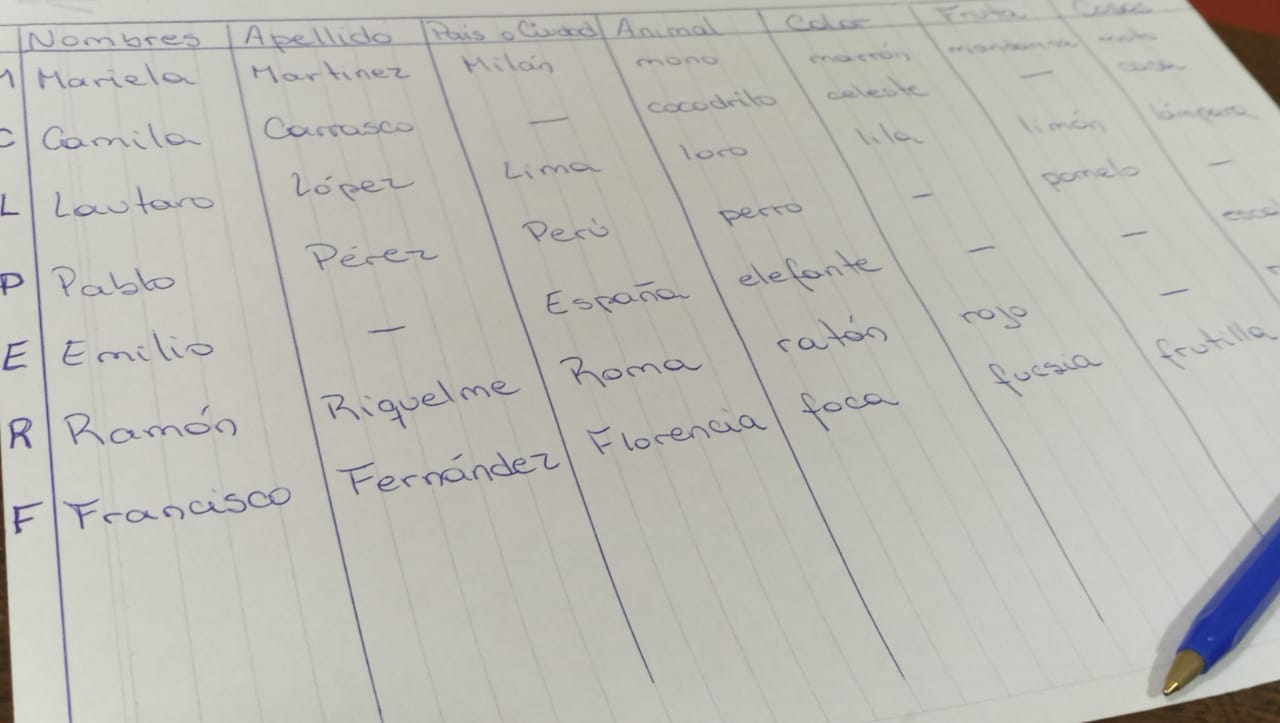 Nombres Apellido Pais o Ciudad Animal Color Fruta Cosas
M Mariela Martinez Milán mono marrón mandarina moto
C Camila Carrasco — cocodrilo celeste — casa
L Lautaro López Lima loro lila limón lámpara
P Pablo Pérez Perú perro — pomelo —
E Emilio — España elefante — —
R Ramón Riquelme Roma ratón rojo —
F Francisco Fernández Florencia foca fucsia frutilla